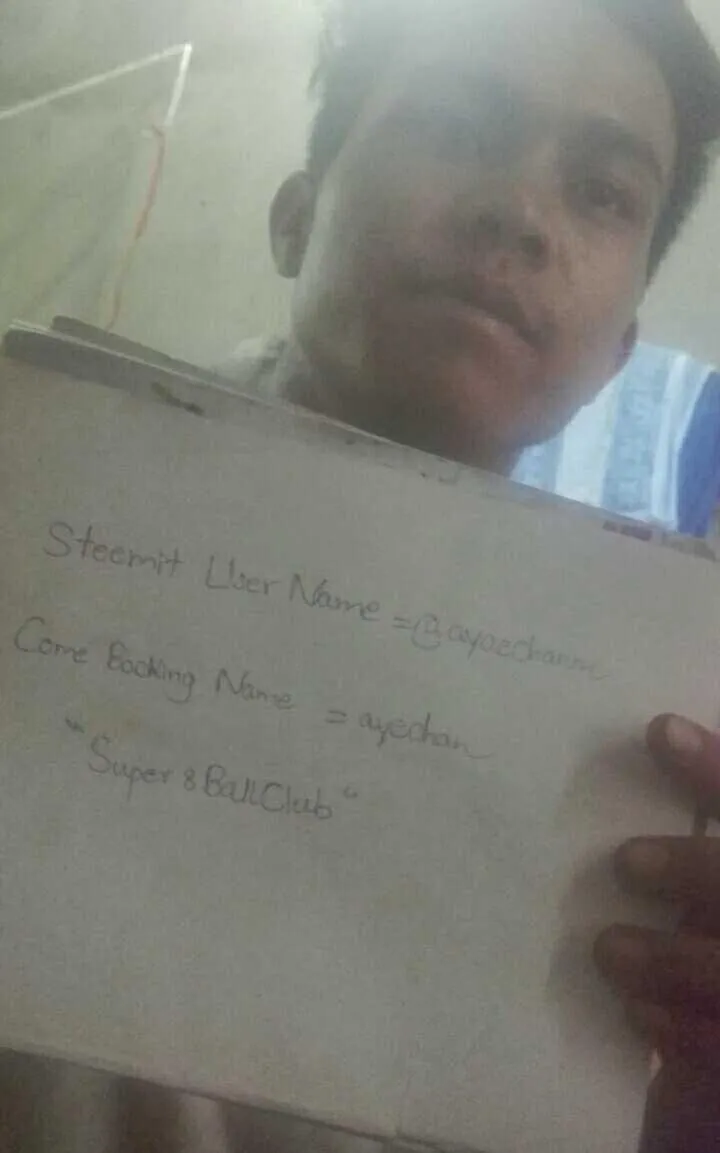 Steemit User Name = @ayaechanm
Come Booking Name = ayechan
"Super 8 Ball Club"